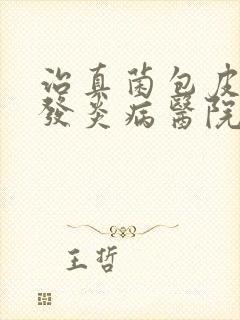 治真菌包皮
發炎病醫院
王哲